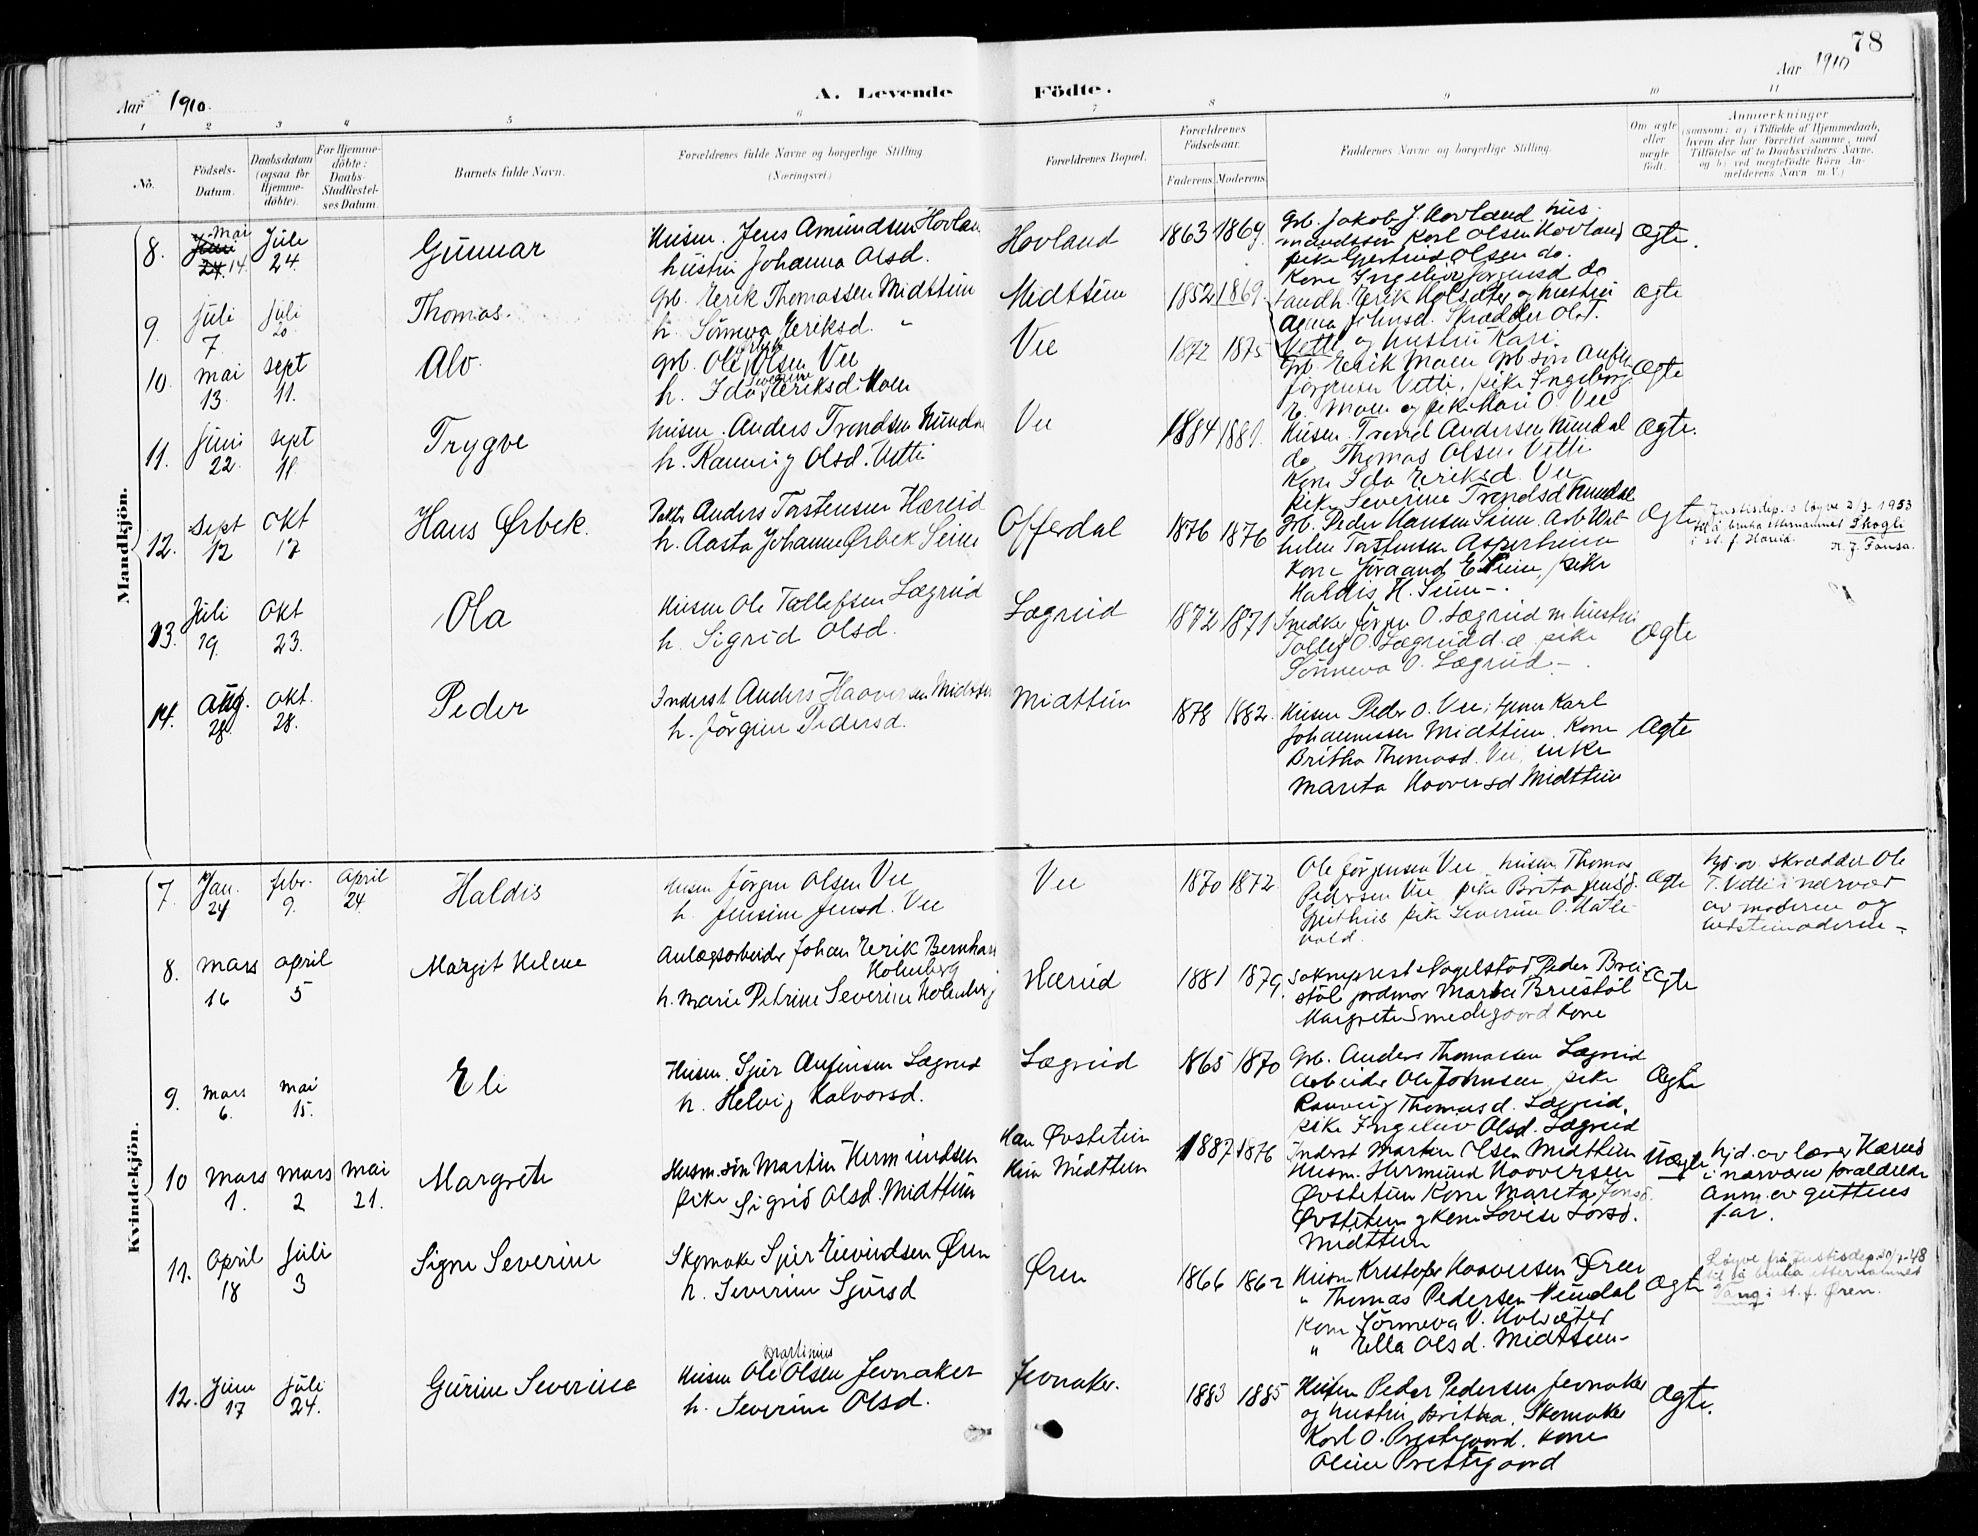 78
Aar 1910.
A. Levende Födte.
Aar 1910
1 2 3 4 5 6 7 8 9 10 11
No.
Födsels-Datum.
Daabsdatum (ogsaa for Hjemme-döbte).
For Hjemme-döbte: Daabs-Stadfæstel-ses Datum.
Barnets fulde Navn.
Forældrenes fulde Navne og borgerlige Stilling
(Næringsvei.)
Forældrenes Bopæl.
Forældrenes Födselsaar.
Faderens. Moderens.
Faddernes Navne og borgerlige Stilling.
Om ægte eller uægte födt.
Anmærkninger
(saasom: a) i Tilfælde af Hjemmedaab, hvem der har forrettet samme, med Tilföielse af to Daabsvidners Navne, og b) ved uegtefödte Börn Anmelderens Navn m. V.)
Mandkjön.
8. Mai 14. Juli 24. Gunnar
Husm. Jens Amundsen Hovland
hustru Johanna Olsd.
Hovland 1863 1869.
Grb. Jakob J. Hovland. hus-
mandssøn Karl Olsen Hovland
pike Gjertrud Olsen do.
Kone Ingeliv Jørgensd do
Ægte.
9. Juli 7. Juli 20 Thomas.
Grb. Eerik Thomassen Midttun
h. Sønneva Eeriksd. "
Midttun 1852 1869.
Landh. Eerik Holsæter og hustru
Agna Johnsd. Skrædder Ole T.
Vetti og hustru Kari.
Ægte
10. Mai 13. Sept 11. Alv.
Grb. Ole Olsen Vee
h. Ida Severine Eriksd. Moen
Vee 1872 1875
Grb. Eerik Moen Grb. søn Anfin
Jørgensen Vetti, pike Ingeborg
E. Moen og pike Mari O. Vee
Ægte
11. Juni 22. Sept 11. Trygve
Husm. Anders Trondsen Nundal
h. Rannvig Olsd. Vetti
Vee 1884 1881.
Husm. Trond Andersen Nundal
do Thomas Olsen Vetti
Kone Ida Eeriksd. Vee
pike Severine Trondsd Nundal
Ægte.
12. Sept 12 Okt 17 Hans Ørbek.
Anders Torstensen Hæreid
h. Aasta Johanne Ørbek Seim
Offerdal 1876 1876
Grb. Peder Hansen Seim. Arb.
Torstensen Asperheim
Kone Jøraand E Seim, pike
Haldis H. Seim -.
Ægte
Justisdep.s løyve 2/3 1953
til å bruka etternamnet Skogli
i st. f. Hæreid.
13. Juli 19. Okt 23. Ola
Husm Ole Tollefsen Lægreid
h. Sigrid Olsd.
Lægreid 1872 1871
Snedker Jørgen O. Lægreid m. hustru
Tollef O. Lægreid d.æ. pike
Sønneva O. Lægreid -.
Ægte
14. Aug. 28. Okt. 28. Peder
Inderst Anders Haaversen Midttun
h. Jørgine Pedersd.
Midttun 1878 1882.
Husm Peder O. Vee; Karl
Johannessen Midttun. Kone
Britha Thomasd. Vee, enke
Marita Haaversd Midttun
Ægte
Kvindekjön.
7. Jan. 24 febr. 9. April 24. Haldis
Husm Jørgen Olsen Vee
h. Jensine Jensd. Vee
Vee 1870 1872
Ole Jørgensen Vee, husm Thomas
Pedersen Vee pike Brita Jensd.
pike Severine O. Hatle-
vold.
Ægte
hjd. av. skrædder Ole
T. Vetti i nærvær
av moderen og
bedstemoderen -
8. Mars 16 April 5 Margit Helene
Anlægsarbeider Johan Eerik Bernhard
Holmberg
h. Marie Petrine Severine Holmberg
Hæreid 1881 1879.
Soknepræst Nagelstad Peder Brei-
støl jordmor Marta Breistøl
Margrete Smedegaard Kone
Ægte
9. Mars 6. Mai 15. Eli
Husm. Sjur Anfinsen Lægreid
h. Helvig Halvorsd.
Lægreid 1865 1870
Grb. Anders Thomassen Lægreid
Arbeider Ole Johnsen, pike
Rannveig Thomasd. Lægreid,
pike Ingeliv Olsd. Lægreid
Ægte
10 Mars 1. Mars 2 Mai 21. Margrete
Husm. søn Martin Hermundsen
pike Sigrid Olsd. Midttun
Han Øvstetun
Hun Midttun
1887 1876
Inderst Marten Olsen Midttun
Husm. Hermund Haaversen
Øvstetun Kone Marita Jonsd.
Øvstetun og Kone Lovise Larsd.
Midttun
Uægte
hjd. av lærer Hæreid
i nærvær av foreldrene
Anm. av guttens
far.
11. April 18 Juli 3 Signe Severine
Skomaker Sjur Eivindsen Øren
h. Severine Sjursd
Øren 1866 1862
Husm Kristofer Haaversen Øren
" Thomas Pedersen Nundal
Kone Sønneva V. Holsæter
" Ella Olsd. Midttun -
Ægte
Løyve frå Justisdep. 48
til å bruka etternamnet
Vang i st. f. Øren.
12. Juni 17 Juli 24. Gurine Severine
Husm Ole Martinius Olsen Jevnaker
h. Severine Olsd.
Jevnaker. 1883 1885
Husm Peder Pedersen Jevnaker
og hustru Britha, Skomaker
Karl O. Prestegaard. Kone
Oline Prestegaard
Ægte.